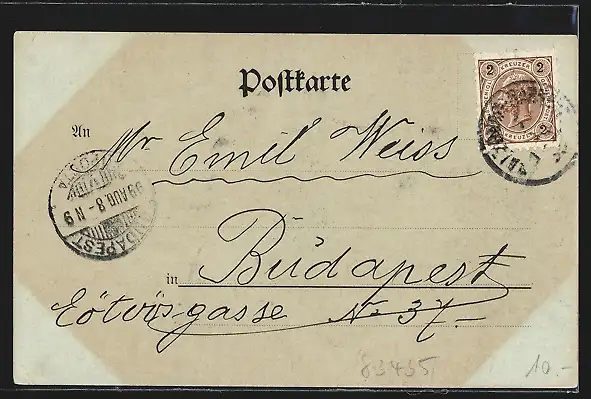 Postkarte
2 KREUZER 2
An Mr Emil Weiss
BUDAPEST
99 AUG. 8 - N 9
POSTA
in Budapest
Eötvösgasse No 37.-
83435
10.-